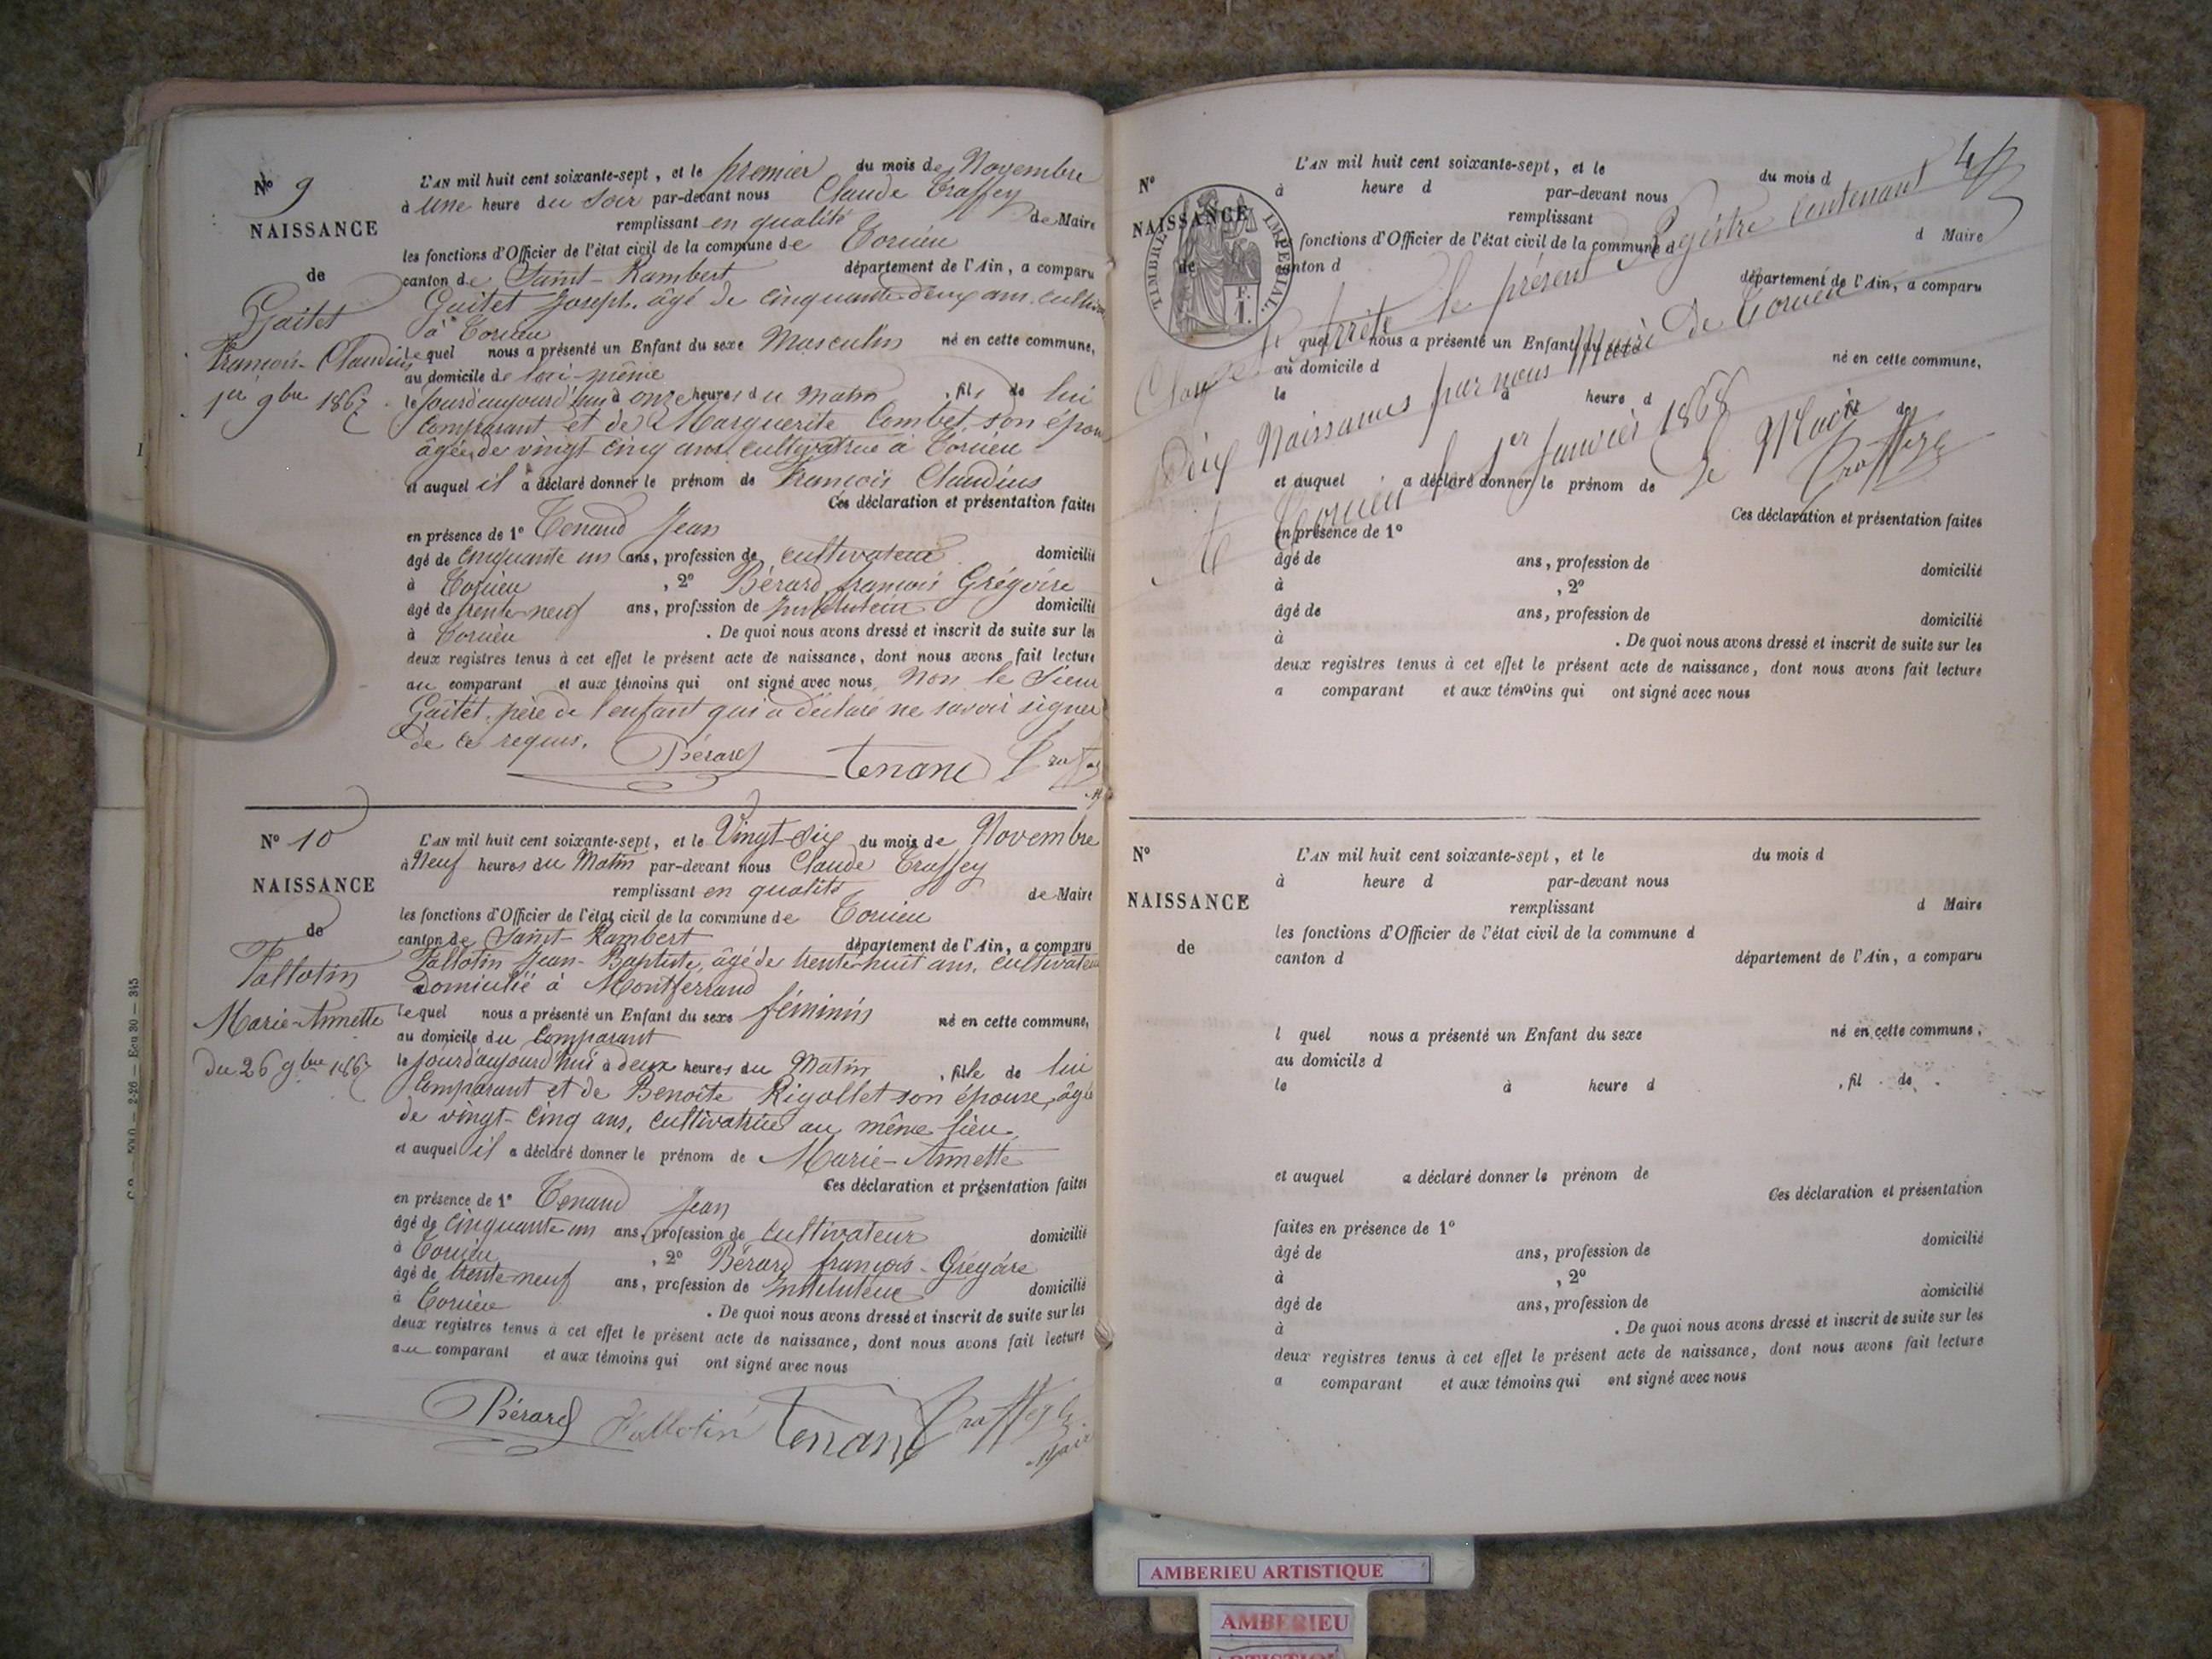 N° 9
NAISSANCE
de
Gaitet
François-Claudius
1er 9bre 1867
L'AN mil huit cent soixante-sept, et le premier du mois de Novembre
à une heure du soir par-devant nous Claude Traffey
remplissant en qualité de Maire
les fonctions d'Officier de l'état civil de la commune de Torcieu
canton de Saint-Rambert département de l'Ain, a comparu
Gaitet Joseph, âgé de cinquante deux ans, cultiv
à Torcieu
lequel nous a présenté un Enfant du sexe Masculin né en cette commune,
au domicile de lui-même
le jourd'aujourd'hui à onze heures du matin, fils de lui
comparant et de Marguerite Combet son épou
âgée de vingt cinq ans cultivatrice à Torcieu
et auquel il a déclaré donner le prénom de François Claudius
Ces déclaration et présentation faites
en présence de 1° Tenand Jean
âgé de cinquante un ans, profession de cultivateur domicilié
à Torcieu, 2° Bérard françois Grégoire
âgé de trente-neuf ans, profession de Instituteur domicilié
à Torcieu. De quoi nous avons dressé et inscrit de suite sur les
deux registres tenus à cet effet le présent acte de naissance, dont nous avons fait lecture
au comparant et aux témoins qui ont signé avec nous, non le sieur
Gaitet, père de l'enfant qui a déclaré ne savoir signer
de ce requis.
Bérard Tenand Traffey
N° 10
NAISSANCE
de
Fallotin
Marie-Annette
du 26 9bre 1867
L'AN mil huit cent soixante-sept, et le Vingt-six du mois de Novembre
à Neuf heures du Matin par-devant nous Claude Traffey
remplissant en qualité de Maire
les fonctions d'Officier de l'état civil de la commune de Torcieu
canton de Saint-Rambert département de l'Ain, a comparu
Fallotin Jean-Baptiste, âgé de trente-huit ans, cultivateur
domicilié à Montferrand
lequel nous a présenté un Enfant du sexe féminin né en cette commune,
au domicile du Comparant
le jourd'aujourd'hui à deux heures du Matin, fille de lui
Comparant et de Benoîte Rigollet son épouse, âgé
de vingt-cinq ans, cultivatrice au même lieu,
et auquel il a déclaré donner le prénom de Marie-Annette
Ces déclaration et présentation faites
en présence de 1° Tenand Jean
âgé de cinquante un ans, profession de cultivateur domicilié
à Torcieu, 2° Bérard françois-Grégoire
âgé de trente-neuf ans, profession de Instituteur domicilié
à Torcieu. De quoi nous avons dressé et inscrit de suite sur les
deux registres tenus à cet effet le présent acte de naissance, dont nous avons fait lecture
au comparant et aux témoins qui ont signé avec nous
Bérard Fallotin Tenand Traffey
Maire
N°
NAISSANCE
de
TIMBRE IMPERIAL
L'AN mil huit cent soixante-sept, et le du mois d
à heure d par-devant nous
remplissant d Maire
fonctions d'Officier de l'état civil de la commune d
canton d département de l'Ain, a comparu
l quel nous a présenté un Enfant du sexe né en cette commune,
au domicile d
le à heure d fil de
et auquel a déclaré donner le prénom de
Ces déclaration et présentation faites
en présence de 1°
âgé de ans, profession de domicilié
à , 2°
âgé de ans, profession de domicilié
à . De quoi nous avons dressé et inscrit de suite sur les
deux registres tenus à cet effet le présent acte de naissance, dont nous avons fait lecture
a comparant et aux témoins qui ont signé avec nous
Clos et Arrêté le présent Registre Contenant
Dix Naissances par nous Maire de Torcieu
à Torcieu le 1er Janvier 1868
Le Maire
Traffey
N°
NAISSANCE
de
L'AN mil huit cent soixante-sept, et le du mois d
à heure d par-devant nous
remplissant d Maire
les fonctions d'Officier de l'état civil de la commune d
canton d département de l'Ain, a comparu
l quel nous a présenté un Enfant du sexe né en cette commune,
au domicile d
le à heure d , fil de
et auquel a déclaré donner le prénom de
Ces déclaration et présentation
faites en présence de 1°
âgé de ans, profession de domicilié
à , 2°
âgé de ans, profession de domicilié
à . De quoi nous avons dressé et inscrit de suite sur les
deux registres tenus à cet effet le présent acte de naissance, dont nous avons fait lecture
a comparant et aux témoins qui ont signé avec nous
AMBERIEU ARTISTIQUE
AMBERIEU
ARTISTIQUE